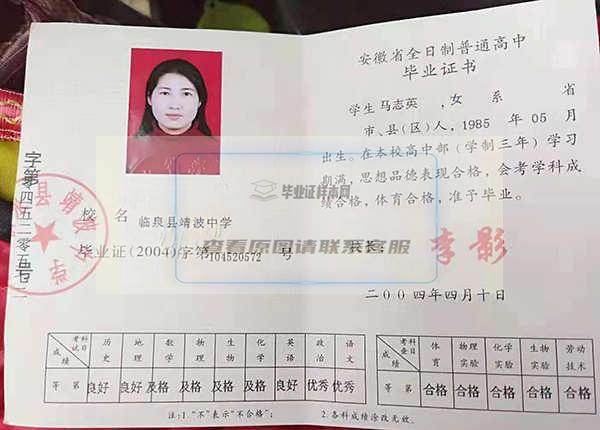 安徽省全日制普通高中
毕业证书
学生 马志英 ，女 系 省
市、县(区)人，1985 年 05 月
出生。在本校高中部(学制三年)学习
期满，思想品德表现合格，会考学科成
绩合格，体育合格，准予毕业。
校 名 临泉县靖波中学
毕业证(2004)字第104520572 号
校长： 李影
二〇〇四年四月十日
毕业证样本网
查看原图请联系客服
县靖波中学
考试科目 历史 地理 数学 物理 生物 化学 英语 政治 语文
成绩
等 第 良好 良好 及格 及格 及格 及格 良好 优秀 优秀
注:1.“不”表示“不合格”； 2.各科成绩涂改无效。
考查科目 体育 物理实验 化学实验 生物实验 劳动技术
成绩
等 第 合格 合格 合格 合格 合格